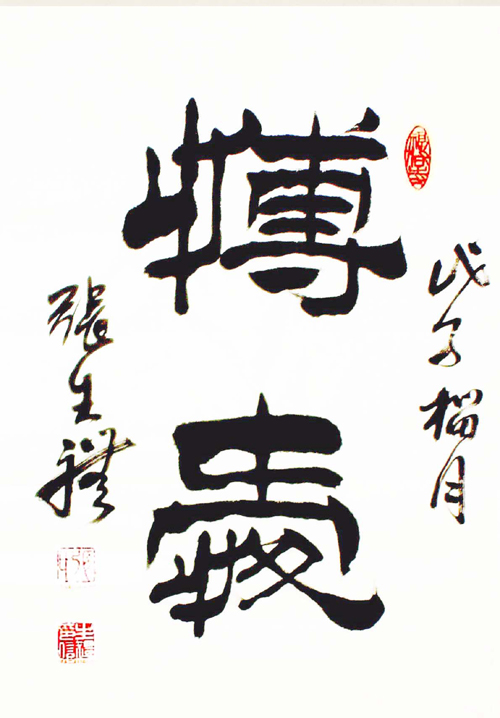 戊子榴月
博愛
張生禮